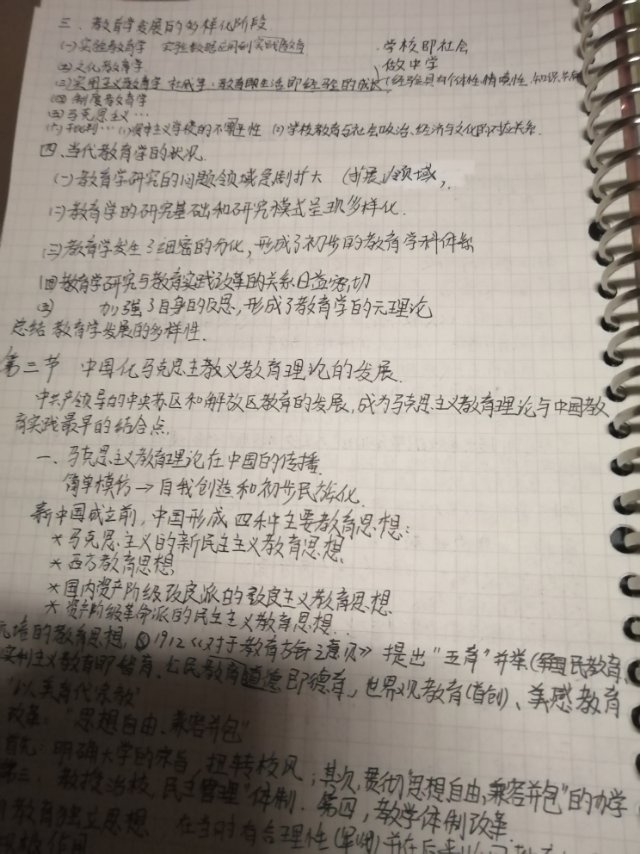 三、教育学发展的多样化阶段
(一)实验教育学 实验教育 学校即社会
(二)文化教育学 做中学
(三)实用主义教育学 杜威等:教育即生活即经验的成长(经验具有个体性,情境性,知识
(四)制度教育学
(五)马克思主义…
(六)批判…(1)资本主义学校的不平性 (2)学校教育与社会政治、经济与文化的对应关系.
四、当代教育学的状况
(一)教育学研究的问题领域急剧扩大 (扩展)领域,
(二)教育学的研究基础和研究模式呈现多样化.
(三)教育学发生了细密的分化,形成了初步的教育学科体系
(四)教育学研究与教育实践改革的关系日益密切
(五) 加强了自身的反思,形成了教育学的元理论
总结 教育学发展的多样性.
第二节 中国化马克思主教义教育理论的发展.
中共产领导的中央苏区和解放区教育的发展,成为马克思主义教育理论与中国教
育实践最早的结合点.
一、马克思主义教育理论在中国的传播.
简单模仿→自我创造和初步民族化.
新中国成立前,中国形成四种主要教育思想:
*马克思主义的新民主主义教育思想
*西方教育思想
*国内资产阶级改良派的改良主义教育思想
*资产阶级革命派的民主主义教育思想.
元培的教育思想, 1912《对于教育方针之意见》提出"五育"并举(军国民教育,
实利主义教育即智育、公民教育道德即德育,世界观教育(首创)、美感教育
"以美育代宗教"
改革:"思想自由、兼容并包"
首先:明确大学的宗旨,扭转校风;其次,贯彻"思想自由,兼容并包"的办学
第三、教授治校,民主管理"体制.第四,教学体制改革.
教育独立思想. 在当时有合理性(军阀)并在后来